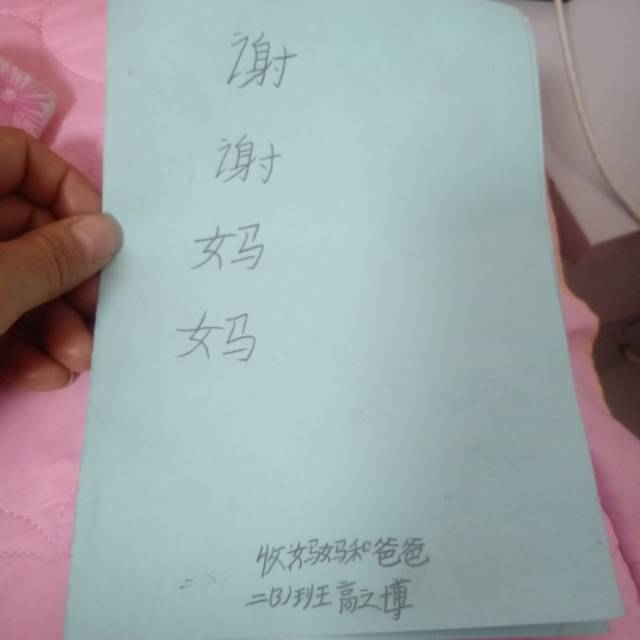 谢
谢
妈
妈
收妈妈和爸爸
二(3)班高之博